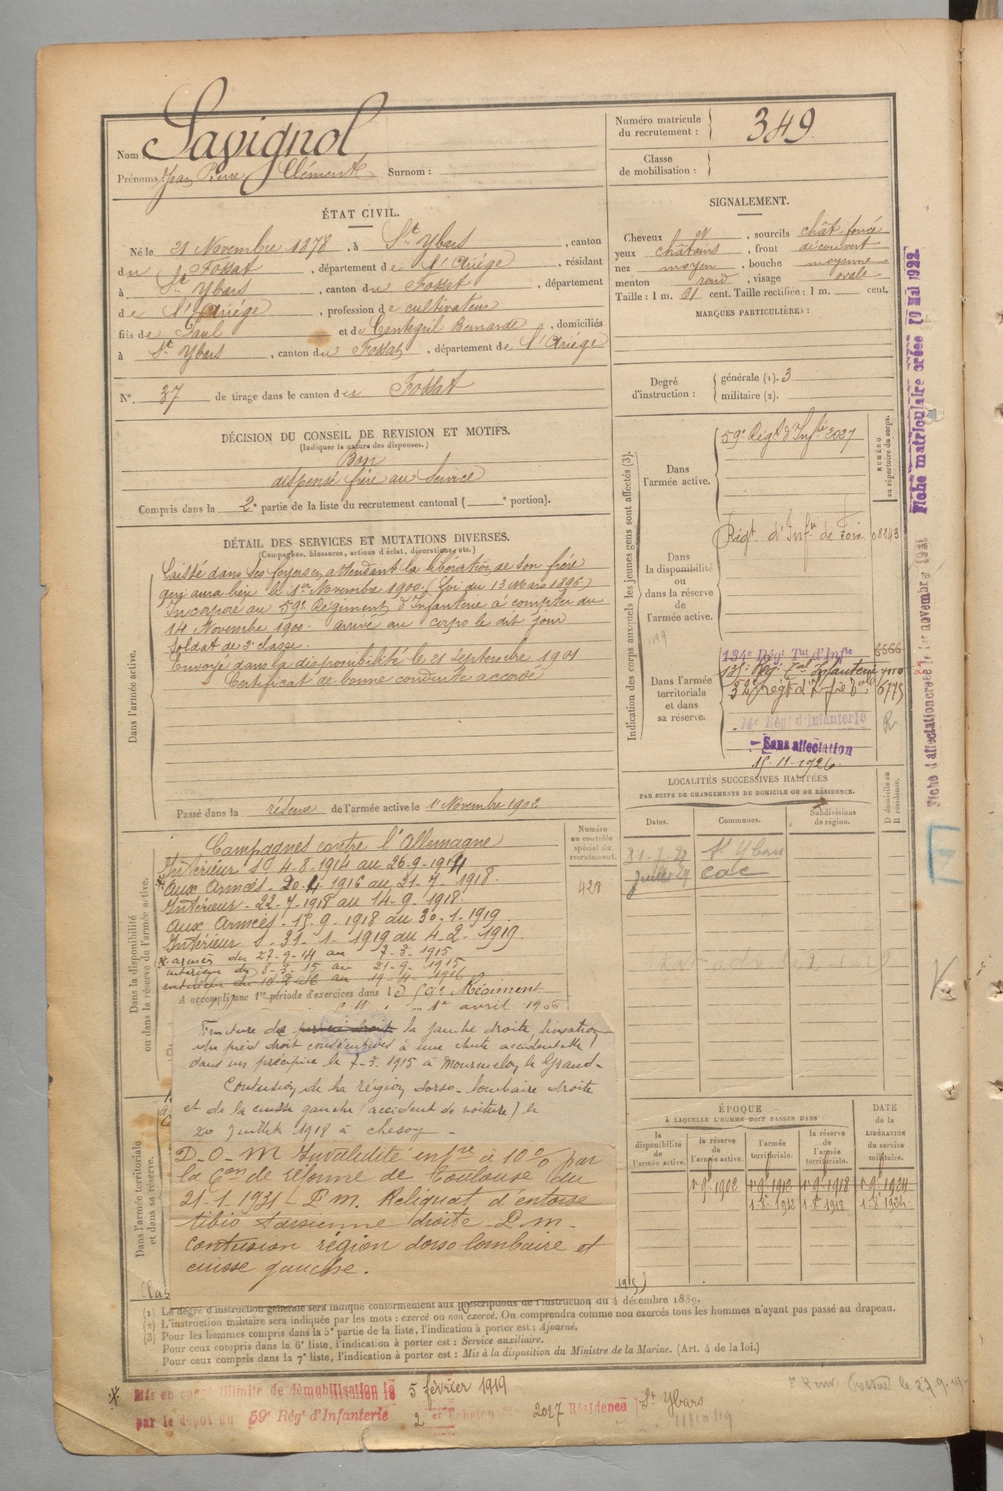 Nom : Savignol
Prénoms : Jean Pierre Clément Surnom :
Numéro matricule du recrutement : 349
Classe de mobilisation :
ÉTAT CIVIL.
Né le 21 Novembre 1878, à St Ybars, canton
du Fossat, département de l'Ariège, résidant
à St Ybars, canton du Fossat, département
de l'Ariège, profession de cultivateur
fils de Paul et de Bernarde, domiciliés
à St Ybars, canton du Fossat, département de l'Ariège
N°. 37 de tirage dans le canton de Fossat
SIGNALEMENT.
Cheveux , sourcils chât. foncé
yeux châtains, front découvert
nez moyen, bouche moyenne
menton rond, visage ovale
Taille : 1 m. 61 cent. Taille rectifiée : 1 m. cent.
MARQUES PARTICULIÈRES :
Degré d'instruction : générale (1). 3
militaire (2).
DÉCISION DU CONSEIL DE REVISION ET MOTIFS.
(Indiquer la nature des dispenses.)
Bon
dispensé frère au service
Compris dans la 2e partie de la liste du recrutement cantonal ( e portion).
DÉTAIL DES SERVICES ET MUTATIONS DIVERSES.
(Campagnes, blessures, actions d'éclat, décorations, etc.)
Dans l'armée active.
Laissé dans ses foyers en attendant la libération de son frère
qui aura lieu le 1er Novembre 1900 (Loi du 13 Mars 1896)
Incorporé au 59e Régiment d'Infanterie à compter du
14 Novembre 1900. arrivé au corps le dit jour
soldat de 2e classe.
Envoyé dans la disponibilité le 21 Septembre 1901
Certificat de bonne conduite accordé
Passé dans la réserve de l'armée active le 1er Novembre 1902
Indication des corps auxquels les jeunes gens sont affectés (3).
NUMÉRO au répertoire du corps.
Dans l'armée active.
59e Régt d'Infrie 2027
Dans la disponibilité ou dans la réserve de l'armée active.
Régt d'Infie de Foix 08243
Dans l'armée territoriale et dans sa réserve.
134e Régt Tal d'Infie
135e Régt Tal Infanterie
Régt d'Infanterie
Sans affectation
15-11-1926
LOCALITÉS SUCCESSIVES HABITÉES
PAR SUITE DE CHANGEMENTS DE DOMICILE OU DE RÉSIDENCE.
Dates. Communes. Subdivisions de région. D domicile ou R résidence.
St Ybars
Dans la disponibilité ou dans la réserve de l'armée active.
Numéro au contrôle spécial du recrutement.
428
Campagnes contre l'Allemagne
Intérieur 4-8-1914 au 26-9-1914
Aux Armées 20-4 1916 au 21-7-1918.
Intérieur - 22-7-1918 au 14-9-1918.
Aux Armées - 15-9-1918 au 30-1-1919.
Intérieur 31-1-1919 au 4-2-1919.
x armées du 27-9-14 au 7-3-1915
intérieur du 8-3-15 au 21-9-1915
A accompli une 1re période d'exercices dans le 59e Régiment
1er avril 1906
Fracture de la jambe droite luxation
du pied droit consécutives à une chute accidentelle
dans un précipice le 7-3-1915 à Mourmelon le Grand.
Contusion de la région dorso-lombaire droite
et de la cuisse gauche (accident de voiture) le
20 juillet 1918 à Chesoy
Dans l'armée territoriale et dans sa réserve.
D-O-M Invalidité infre à 10% par
la Con de réforme de Toulouse du
21-1-1931. P.M. Reliquat d'entorse
tibio tarsienne droite P.m.
contusion région dorso lombaire et
cuisse gauche.
ÉPOQUE
À LAQUELLE L'HOMME DOIT PASSER DANS :
la disponibilité de l'armée active.
la réserve de l'armée active.
l'armée territoriale.
la réserve de l'armée territoriale.
DATE de la LIBÉRATION du service militaire.
(1) Le degré d'instruction générale sera indiqué conformément aux prescriptions de l'instruction du 4 décembre 1889.
(2) L'instruction militaire sera indiquée par les mots : exercé ou non exercé. On comprendra comme non exercés tous les hommes n'ayant pas passé au drapeau.
(3) Pour les hommes compris dans la 5e partie de la liste, l'indication à porter est : Ajourné.
Pour ceux compris dans la 6e liste, l'indication à porter est : Service auxiliaire.
Pour ceux compris dans la 7e liste, l'indication à porter est : Mis à la disposition du Ministre de la Marine. (Art. 4 de la loi.)
Mis en congé illimité de démobilisation le 5 février 1919
par le dépôt du 59e Régt d'Infanterie
2e Echelon No 2017 Résidence St Ybars
Fiche matriculaire créée 10 Mai 1922
Fiche d'affectation créée le 1er novembre 1921